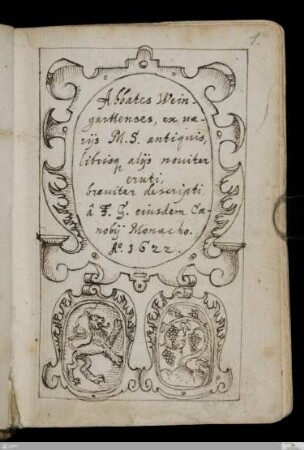 1.
Abbates Wein-
garttenses, ex ua-
rijs M.S. antiquis,
librisq alijs noviter
eruti,
breviter descripti
â F. G. eiusdem Cæ-
nobij Monacho.
Aº. 1622.